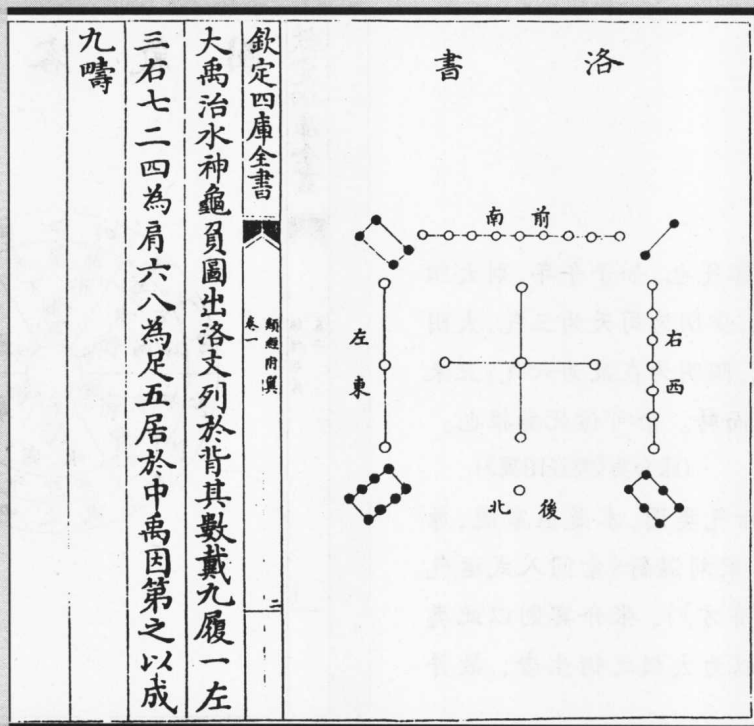 洛書
前南
右西
左東
後北
欽定四庫全書
類經附翼
卷一
二
大禹治水神龜負圖出洛文列於背其數戴九履一左
三右七二四為肩六八為足五居於中禹因第之以成
九疇